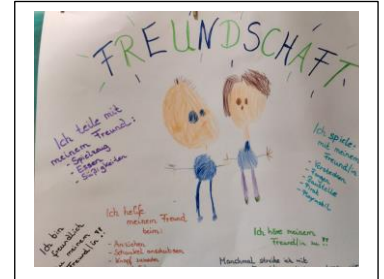 FREUNDSCHAFT
Ich teile mit
meinem Freund:
- Spielzeug
- Essen
- Süßigkeiten
Ich spiele
mit meinem
Freund:
- Verstecken
- Fangen
- Baustelle
Ich helfe meinem Freund
beim:
- Anziehen
Ich bin
freundlich
zu meinem
Freund/in !!
Ich höre meinem
Freund/in zu !!
Manchmal streite ich mit